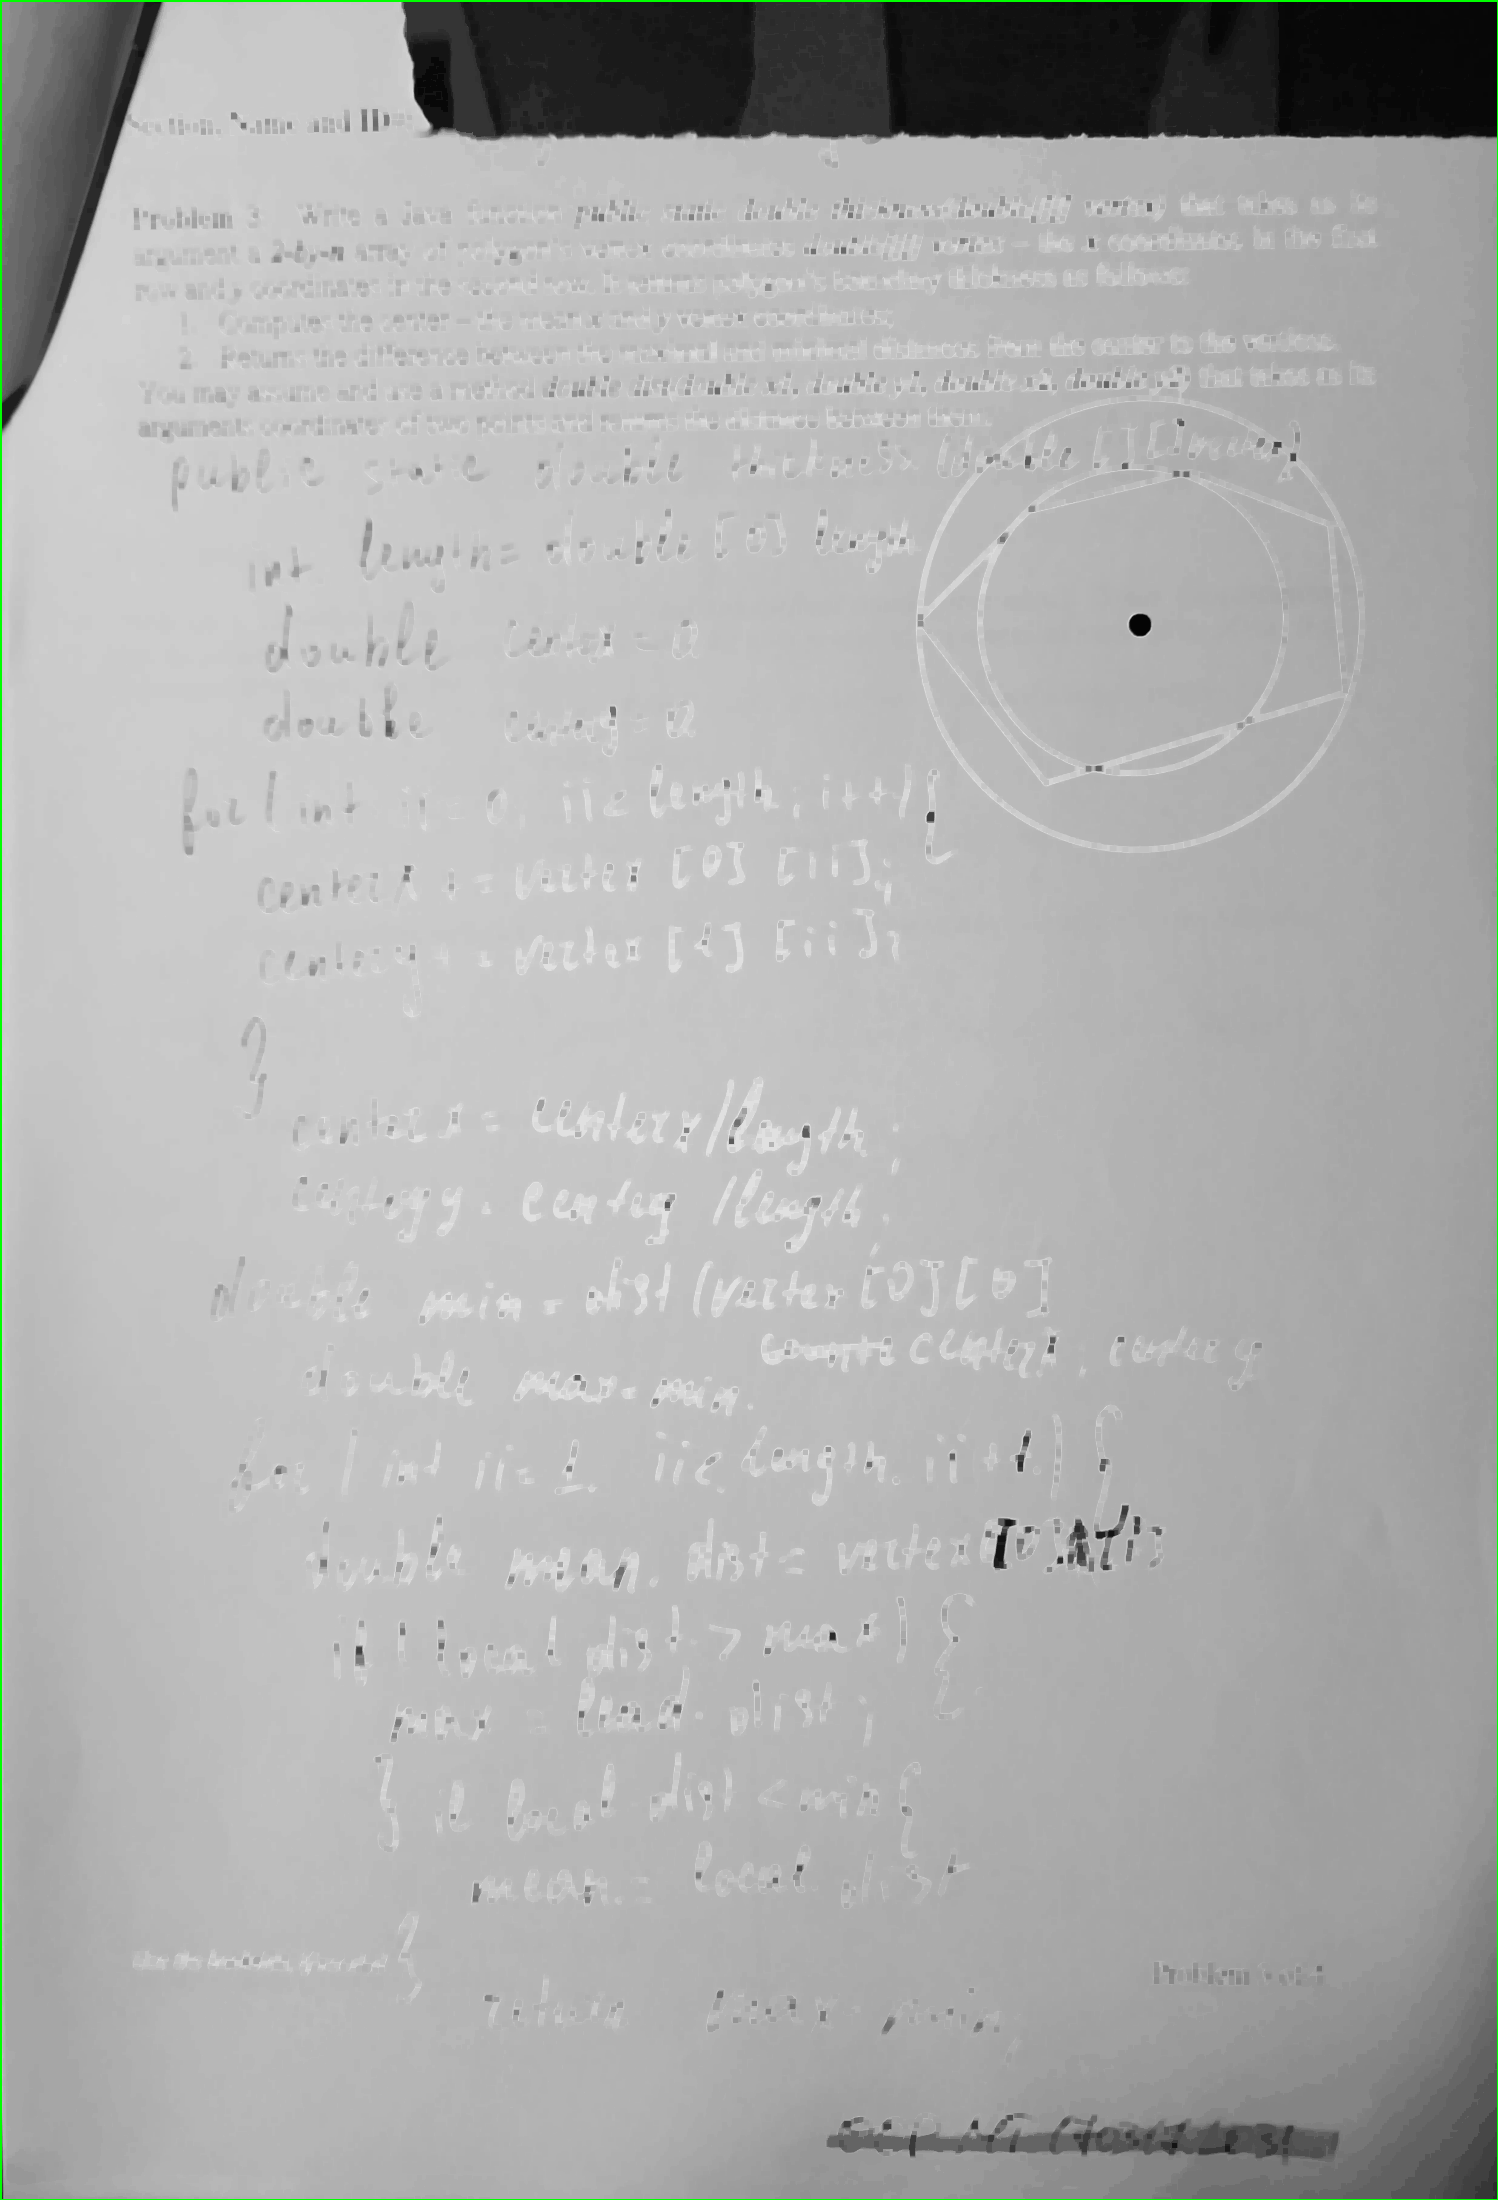 Section, Name and ID
Problem 3 Write a Java function public static double thickness(double[][] vertex) that takes as its
argument a 2-by-n array of polygon's vertex coordinates double[][] vertex – the x coordinates in the first
row and y coordinates in the second row. It returns polygon's boundary thickness as follows:
1. Computes the center – the mean x and y vertex coordinates;
2. Returns the difference between the maximal and minimal distances from the center to the vertices.
You may assume and use a method double dist(double x1, double y1, double x2, double y2) that takes as its
arguments coordinates of two points and returns the distance between them.
public static double thickness (double [][] vertex)
int length = double [0] length
double centerx = 0
double centery = 0
for ( int ii = 0, ii < length; i++) {
centerx += vertex [0] [ii];
centery += vertex [1] [ii];
}
centerx = centerx / length;
centery = centery / length;
double min = dist (vertex [0] [0]
centerx, centery
double max = min.
for ( int ii = 1. ii < length. ii++) {
double mean. dist = vertex [0]
if ( local dist > max) {
max = local. dist;
} if local dist < min {
mean. = local dist
}
Problem 3 of 4
return max - min;